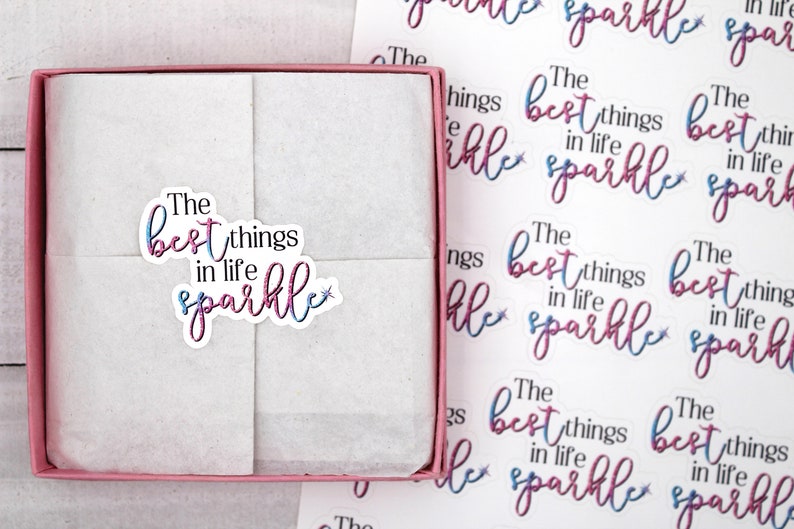 The
best things
in life
sparkle
sparkle
sparkle
in life
The
things
The
best things
in life
sparkle
The
best
in life
things
The
best things
in life
sparkle
The
best
in life
The
best things
in life
sparkle
The
best things
in life
sparkle
The